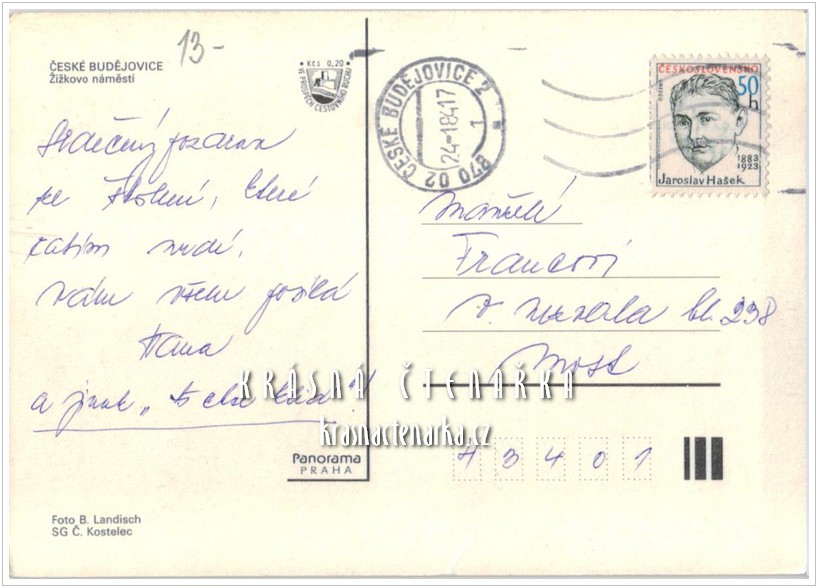 13-
ČESKÉ BUDĚJOVICE
Žižkovo náměstí
Kčs 0,20
VE PROSPĚCH CESTOVNÍHO RUCHU
870 02 ČESKÉ BUDĚJOVICE 2
24-1 84 17
1
ČESKOSLOVENSKO
50 h
1883
1923
Jaroslav Hašek
Srdečný pozdrav
ze školení, které
zatím nudí,
vám všem posílá
Hana
a jinak „to chce klid"!
Manželé
Francovi
V. Nezvala bl. 238
Most
43401
KRÁSNÁ ČTENÁŘKA
krasnactenarka.cz
Panorama
PRAHA
Foto B. Landisch
SG Č. Kostelec